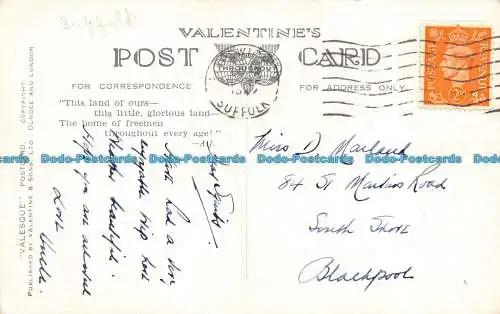 Suffolk
VALENTINE'S
POST CARD
FOR CORRESPONDENCE
FOR ADDRESS ONLY.
"This land of ours—
this little, glorious land—
The home of freemen
throughout every age!"
THROUGHOUT
SUFFOLK
POSTAGE
REVENUE
2D
"VALESQUE" POSTCARD. COPYRIGHT.
PUBLISHED BY VALENTINE & SONS, LTD. DUNDEE AND LONDON.
Have had a very
enjoyable trip here
Weather beautiful.
Hope you are all well
Love Uncle.
Miss D Marland
84 St Martins Road
South Shore
Blackpool
Dodo-Postcards.com Dodo-Postcards.com Dodo-Postcards.com Dodo-Postcards.com